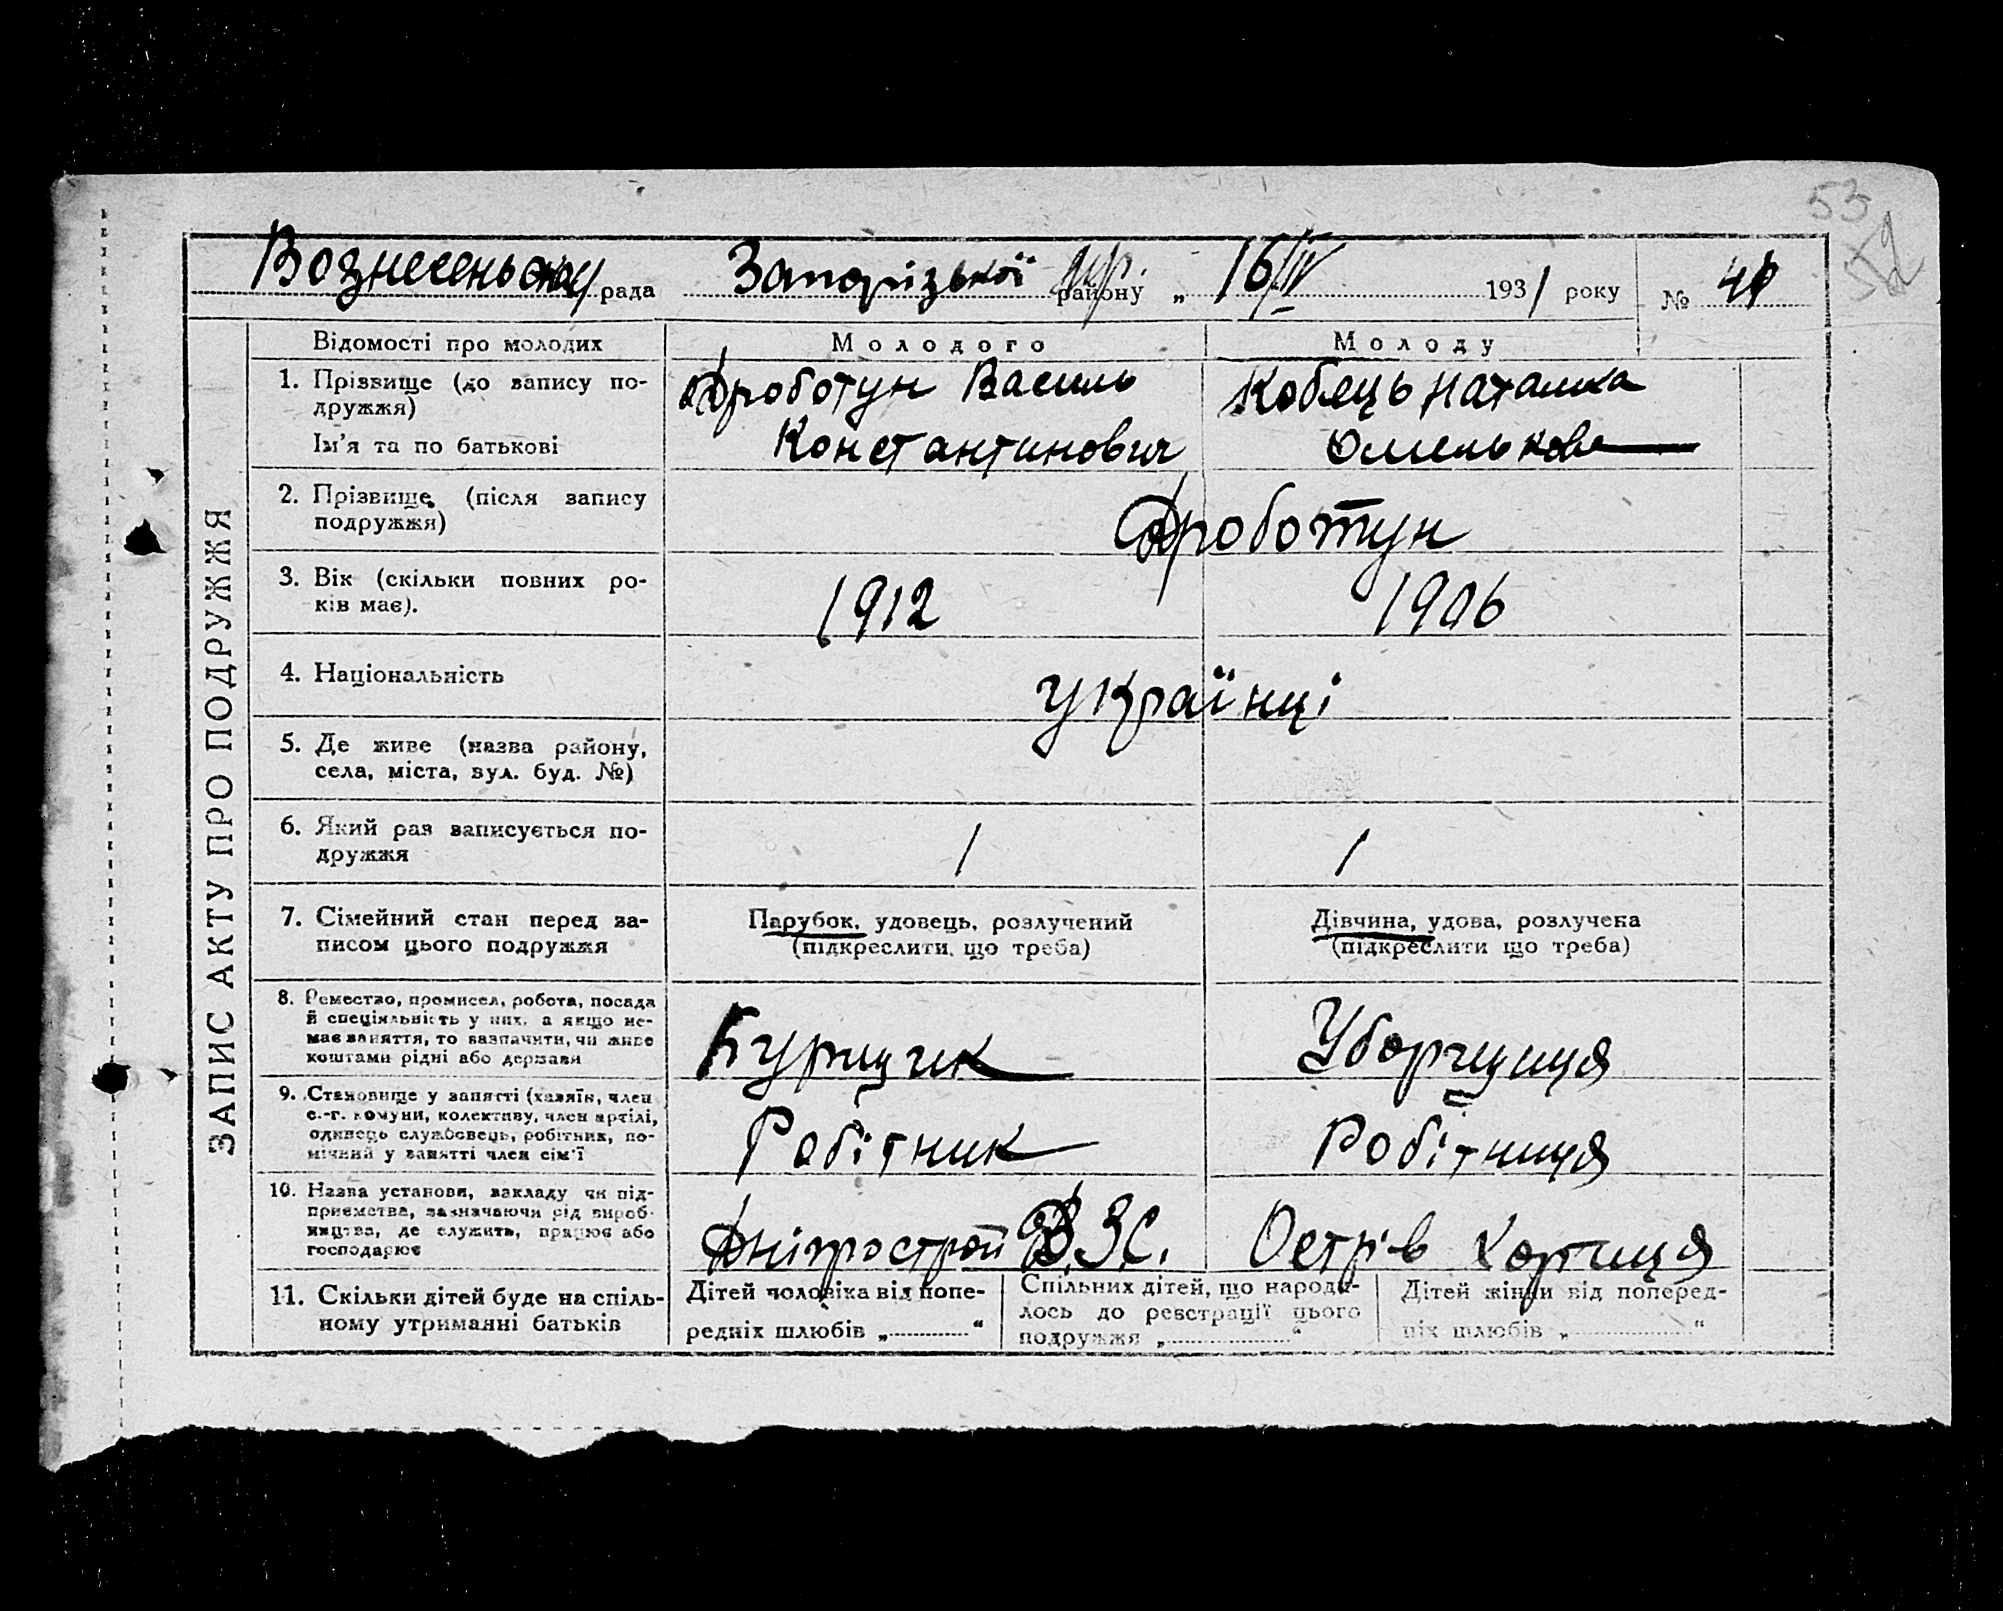 53
52
Вознесенська рада Запорізької м/р. району „ 16/IV 1931 року № 41
ЗАПИС АКТУ ПРО ПОДРУЖЖЯ
Відомості про молодих Молодого Молоду
1. Прізвище (до запису по- Дроботун Василь Кобець Наталка
дружжя)
Ім'я та по батькові Константинович Омелькова
2. Прізвище (після запису Дроботун
подружжя)
3. Вік (скільки повних ро- 1912 1906
ків має).
4. Національність Українці
5. Де живе (назва району,
села, міста, вул. буд. №)
6. Який раз записується по- 1 1
дружжя
7. Сімейний стан перед за- Парубок, удовець, розлучений Дівчина, удова, розлучена
писом цього подружжя (підкреслити, що треба) (підкреслити що треба)
8. Ремество, промисел, робота, посада
й спеціяльність у них, а якщо не-
має заняття, то вазначити, чи живе Бурщик Уборщиця
коштами рідні або держави
9. Становище у занятті (хазяїн, член
с.-г. комуни, колективу, член артілі,
одинець службовець, робітник, по- Робітник Робітниця
мічний у занятті член сім'ї
10. Назва установи, закладу чи під-
приємства, зазначаючи рід вироб-
ництва, де служить, працює або Дніпрострой В.З.С. Острів Хортиця
господарює
11. Скільки дітей буде на спіль- Дітей чоловіка від попе- Спільних дітей, що народи- Дітей жінки від поперед-
ному утриманні батьків редніх шлюбів „ “ лось до реєстрації цього ніх шлюбів „ “
подружжя „ “